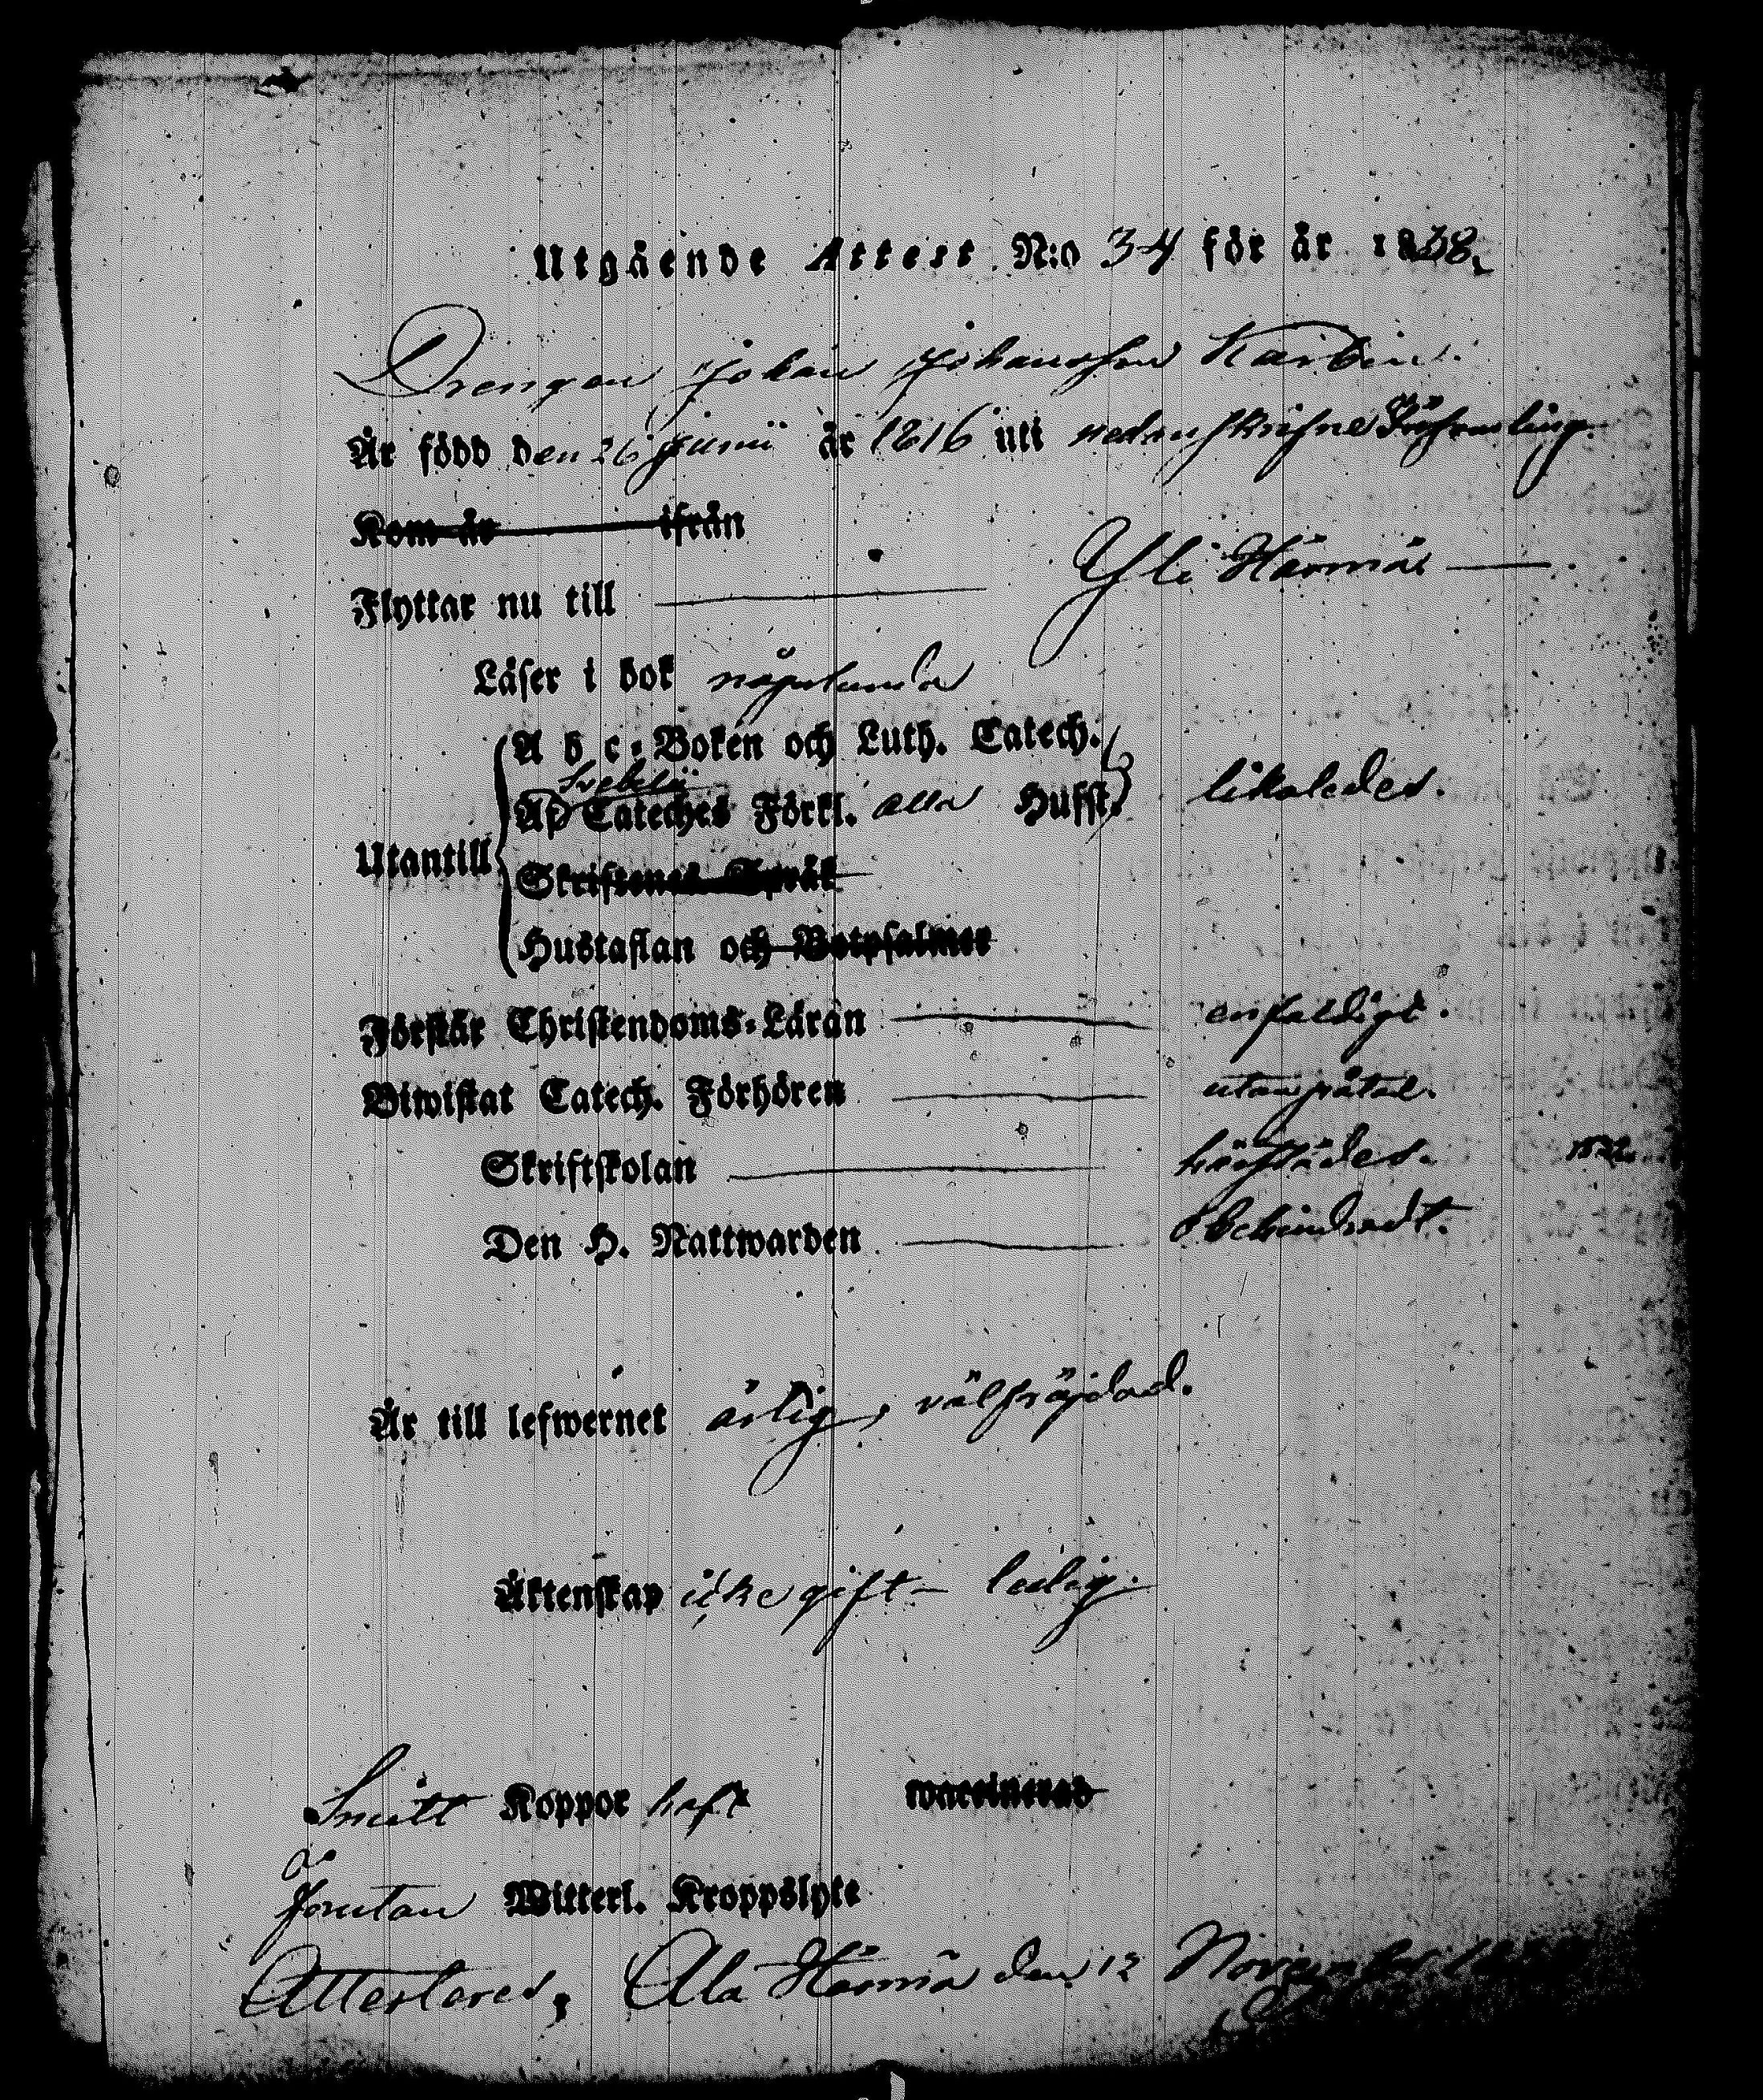 Utgående Attest N:o 34 för år 1838.
Drengen Johan Johansson Kardin.
Är född den 26 Junii år 1816 uti nedanskrifne Församling.
Kom år ifrån
Flyttar nu till Yli Härmä
Läser i bok någolunda
A b c-Boken och Luth. Catech.
Svebelii
Af Cateches Förkl. alla Hufst. likaledes.
Utantill
Skriftenes Språk
Hustaflan och Botpsalmer
Förstår Christendoms-Läran enfaldigt.
Biwistat Catech. Förhören utan påtal.
Skriftskolan härstädes.
Den H. Nattwarden obehindradt.
Är till lefwernet ärlig, välfräjdad.
Äktenskap icke gift - ledig.
Smitt Koppor haft waccinerad
Förutan Witterl. Kroppslyte
Attesteras, Ala Härmä den 12 November